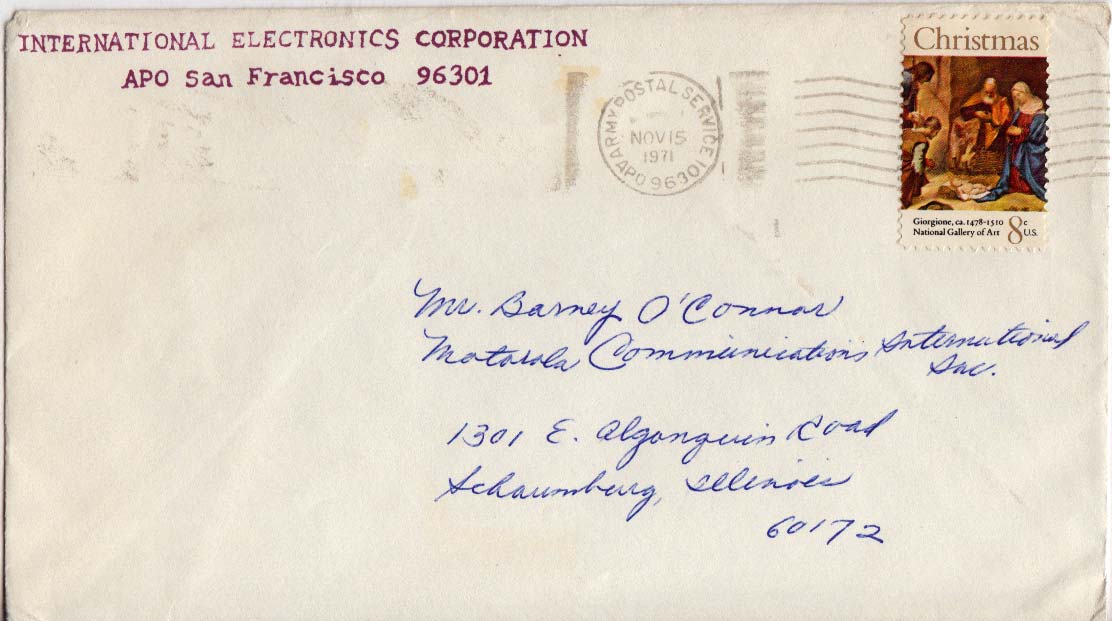 INTERNATIONAL ELECTRONICS CORPORATION
APO San Francisco 96301
ARMY POSTAL SERVICE
NOV 15
1971
APO 96301
Christmas
Giorgione, ca. 1478-1510
National Gallery of Art
8c
U.S.
Mr. Barney O'Connor
Motorola Communications International
Inc.
1301 E. Algonquin Road
Schaumburg, Illinois
60172